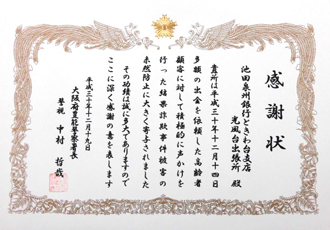 感謝状
池田泉州銀行ときわ台支店
光風台出張所 殿
貴所は平成三十年十二月十四日
多額の出金を依頼した高齢者
顧客に対して積極的に声かけを
行った結果詐欺事件被害の
未然防止に大きく寄与されました
その功績は誠に多大でありますので
ここに深く感謝の意を表します
平成三十年十二月十九日
大阪府豊能警察署長
警視 中村 哲哉